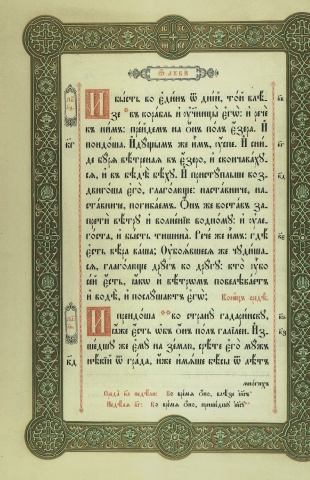 Ѿ лꙋки
И бысть во єдинъ ѿ дній, той влѣ-
зе въ корабль и ᲂу҆чн҃цы єгѡ̀: и рече
къ нимъ: прейдемъ на ѻнъ полъ єзера. И
поидоша. Идꙋщымъ же имъ, ᲂу҆спе. И сни-
де бꙋря вѣтреная въ єзеро, и скончавахꙋ-
ся, и въ бѣдѣ бѣхꙋ. И пристꙋпльше воз-
двигоша єго, глаголюще: наставниче, на-
ставниче, погибаемъ. Ѻнъ же воставъ за-
прети вѣтрꙋ и волненію водномꙋ: и ᲂу҆ле-
госта, и бысть тишина. Рече же имъ: гдѣ
єсть вѣра ваша; Оубоявшеся же чꙋдиша-
ся, глаголюще дрꙋгъ ко дрꙋгꙋ: кто ᲂу҆бо
сей єсть, яко и вѣтромъ повелѣваетъ
и водѣ, и послꙋшаютъ єгѡ̀; Конецъ средѣ.
И прейдоша во странꙋ гадаринскꙋ,
яже єсть ѻбъ ѻнъ полъ галілеи. Из-
шедшꙋ же ємꙋ на землю, срѣте єго мꙋжъ
нѣкій ѿ града, иже имяше бѣсы ѿ лѣтъ
многихъ
Во время ѻно, влѣзе іи҃съ
Во время ѻно, пришедшꙋ іи҃сꙋ